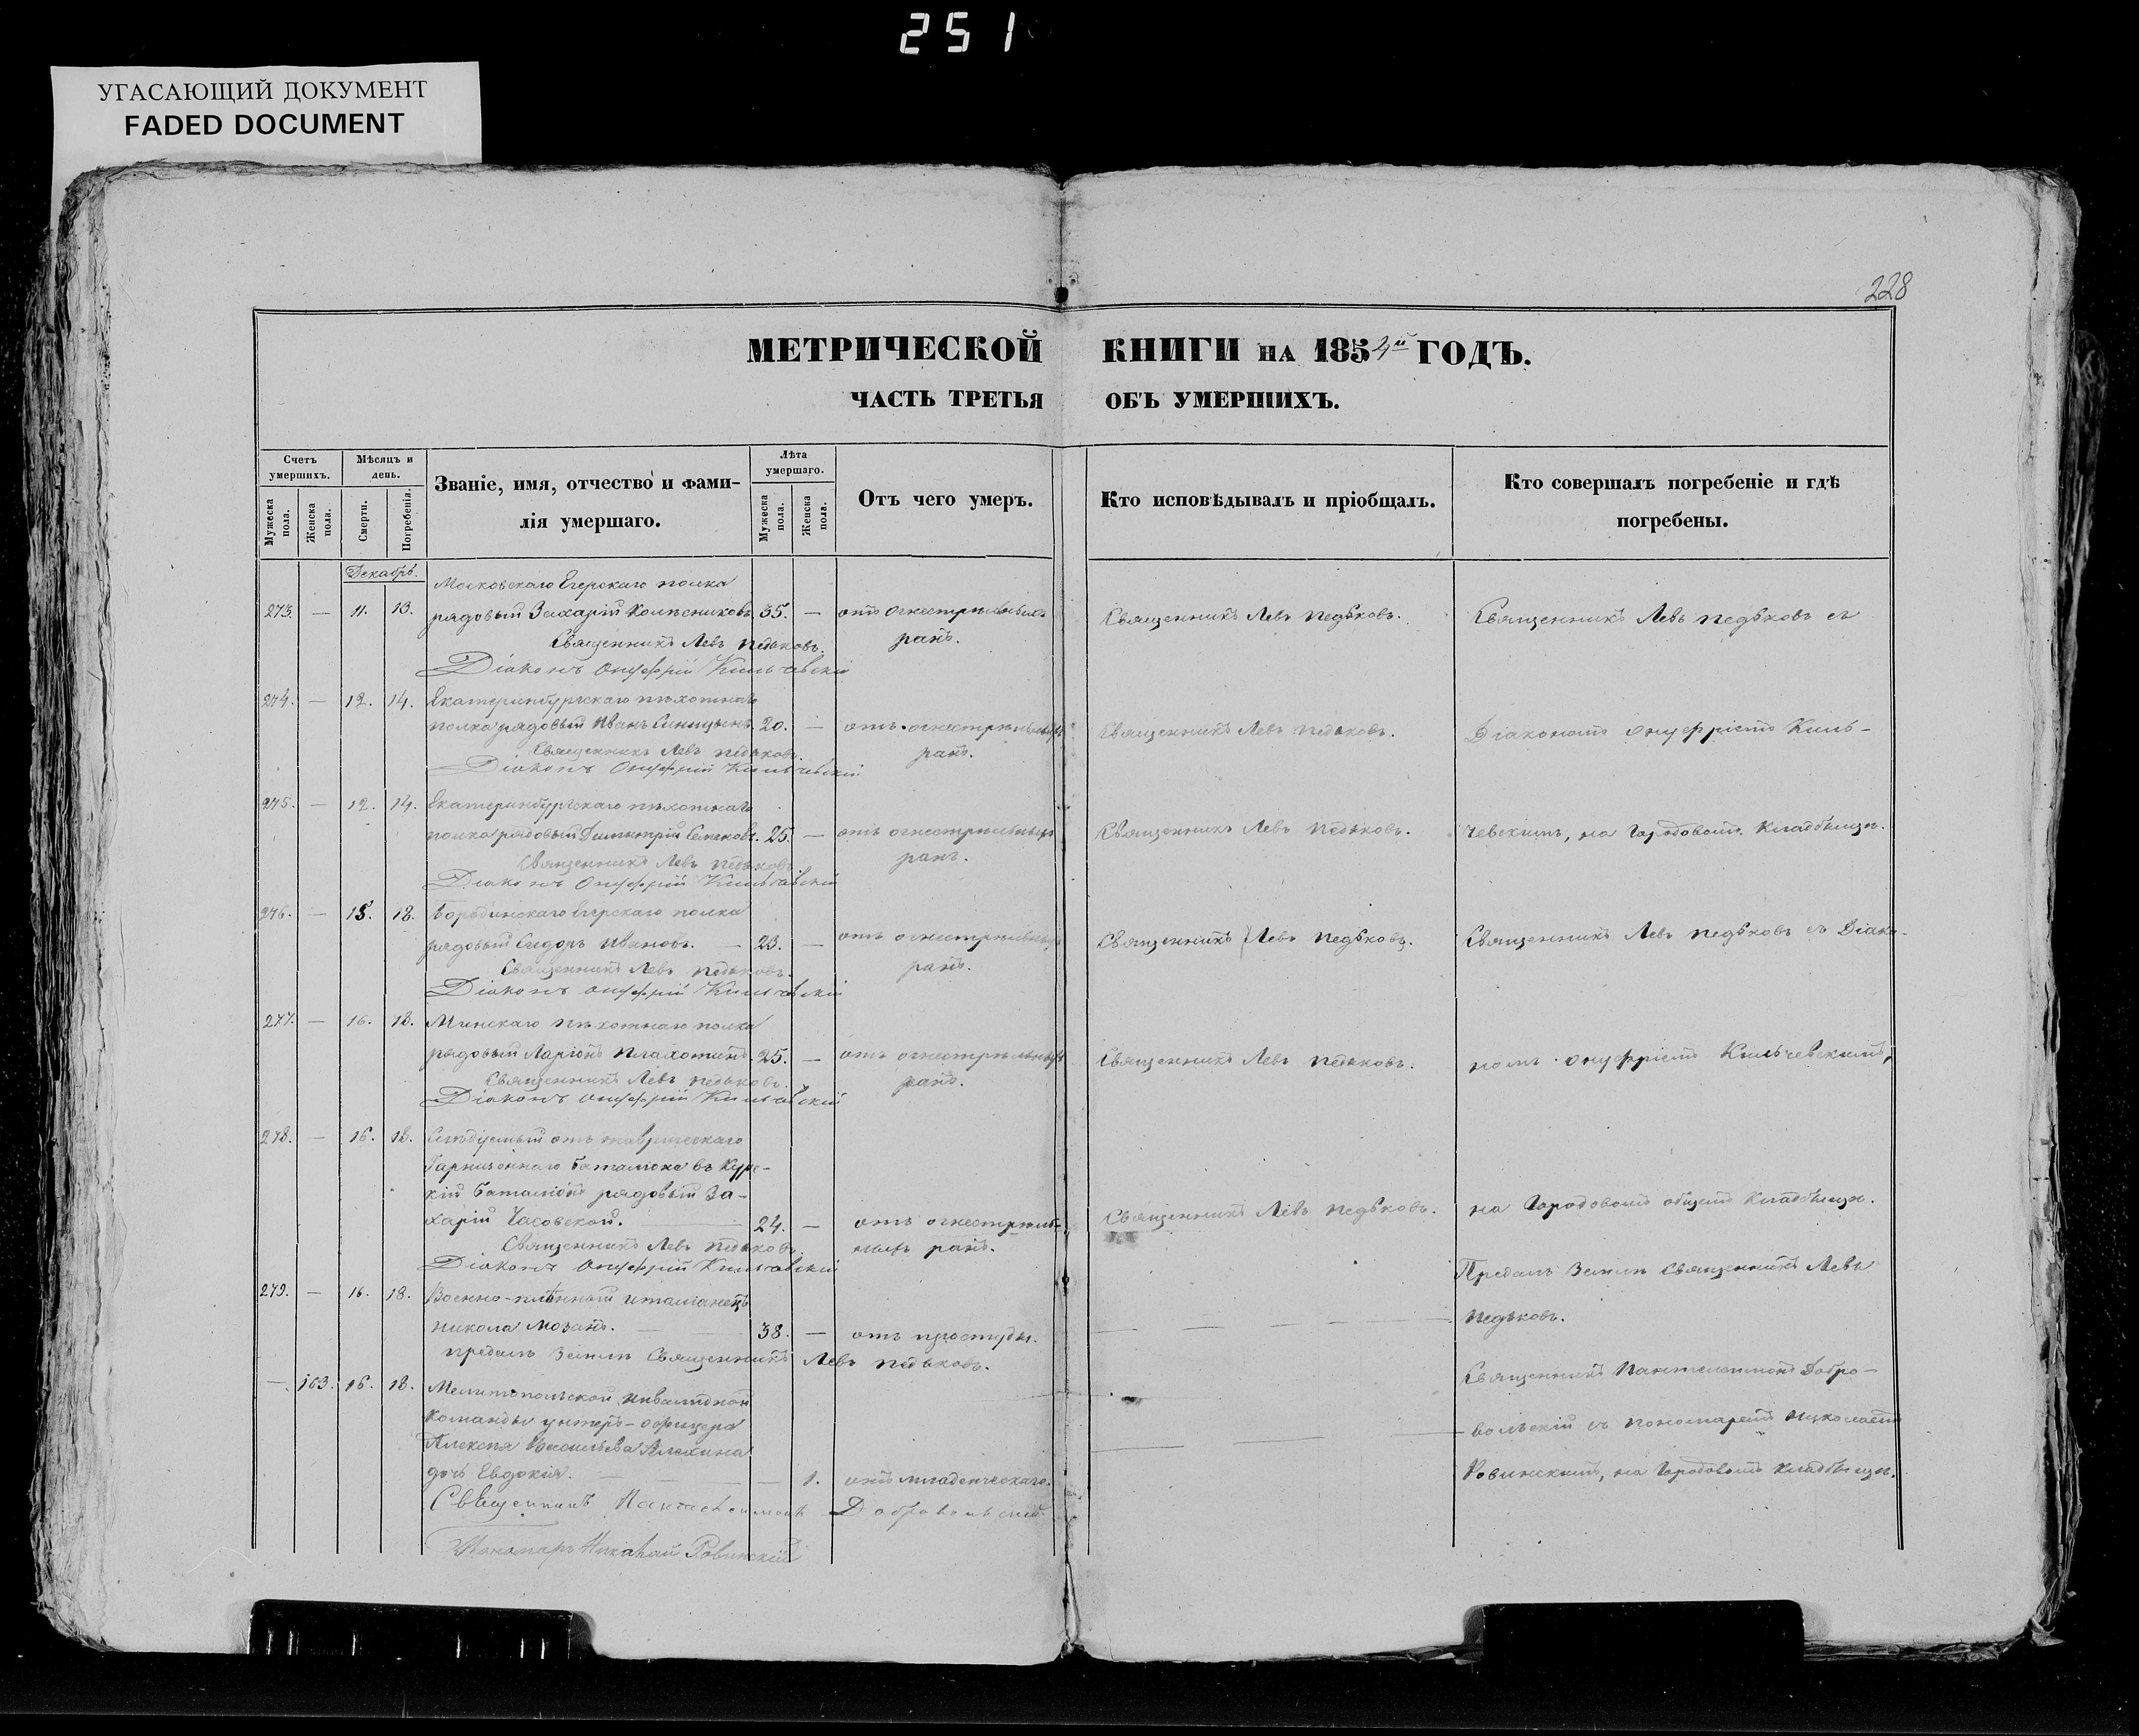 251
УГАСАЮЩИЙ ДОКУМЕНТ
FADED DOCUMENT
228
МЕТРИЧЕСКОЙ КНИГИ НА 1854й ГОДЪ.
ЧАСТЬ ТРЕТЬЯ ОБЪ УМЕРШИХЪ.
Счетъ умершихъ.
Мужеска пола.
Женска пола.
Мѣсяцъ и день.
Смерти.
Погребенія.
Званіе, имя, отчество и фами-
лія умершаго.
Лѣта умершаго.
Мужеска пола.
Женска пола.
Отъ чего умеръ.
Кто исповѣдывалъ и пріобщалъ.
Кто совершалъ погребеніе и гдѣ
погребены.
Декабрь.
Московскаго Егерскаго полка
273. — 11. 13. рядовый Захарій Колесниковъ. 35. — отъ огнестрѣльныхъ Священникъ Левъ Педьковъ. Священникъ Левъ Педьковъ съ
Священникъ Левъ Педьковъ. ранъ.
Діаконъ Онуфрій Кильчевскій
274. — 12. 14. Екатеринбургскаго пѣхотнаго
полка рядовый Иванъ Синицынъ. 20. — отъ огнестрѣльныхъ Священникъ Левъ Педьковъ. Діакономъ Онуфріемъ Киль-
Священникъ Левъ Педьковъ. ранъ.
Діаконъ Онуфрій Кильчевскій
275. — 12. 14. Екатеринбургскаго пѣхотнаго
полка рядовый Димитрій Семеновъ. 25. — отъ огнестрѣльныхъ Священникъ Левъ Педьковъ. чевскимъ, на Городовомъ Кладбищѣ.
Священникъ Левъ Педьковъ. ранъ.
Діаконъ Онуфрій Кильчевскій
276. — 15. 18. Бородинскаго Егерскаго полка
рядовый Сидоръ Ивановъ. — 23. — отъ огнестрѣльныхъ Священникъ Левъ Педьковъ. Священникъ Левъ Педьковъ съ Діако-
Священникъ Левъ Педьковъ. ранъ.
Діаконъ Онуфрій Кильчевскій
277. — 16. 18. Минскаго пѣхотнаго полка
рядовый Ларіонъ Плахотинъ. 25. — отъ огнестрѣльныхъ Священникъ Левъ Педьковъ. номъ Онуфріемъ Кильчевскимъ,
Священникъ Левъ Педьковъ. ранъ.
Діаконъ Онуфрій Кильчевскій
278. — 16. 18. Слѣдуемый отъ таврическаго
Гарнизоннаго баталіона въ Курс-
кій баталіонъ рядовый За-
харій Часовской. 24. — отъ огнестрѣль- Священникъ Левъ Педьковъ. на Городовомъ общемъ Кладбищѣ.
Священникъ Левъ Педьковъ. ныхъ ранъ.
Діаконъ Онуфрій Кильчевскій
279. — 16. 18. Военно-плѣнный италіанецъ Предалъ Земли Священникъ Левъ
Никола Мозанъ. — 38. — отъ простуды. — Педьковъ.
предалъ Земли Священникъ Левъ Педьковъ.
— 163. 16. 18. Мелитопольской инвалидной Священникъ Пантелеимонъ Добро-
Команды унтеръ-офицера
Алексѣя Васильева Алехина вольскій съ пономаремъ Николаемъ
дочь Евдокія. — — 1. отъ младенческаго. — Ровинскимъ, на Городовомъ Кладбищѣ.
Священникъ Пантелеимонъ Добровольскій
Пономарь Николай Ровинскій